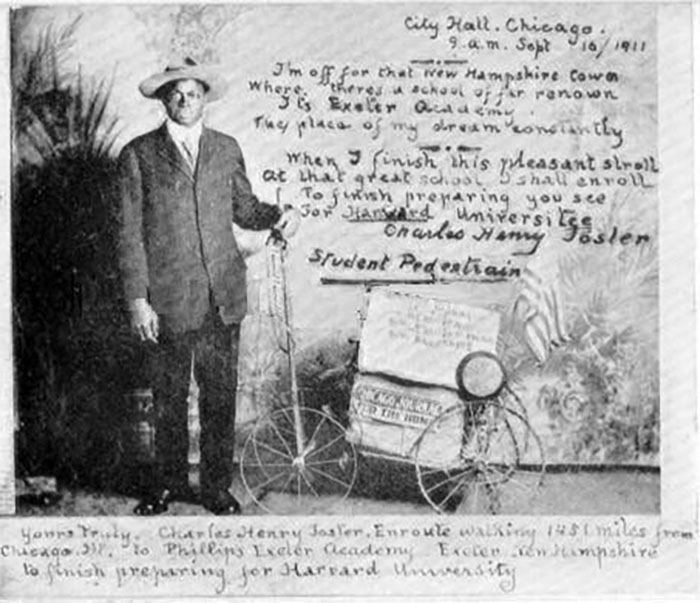 City Hall. Chicago.
9. a.m. Sept 10/1911
I'm off for that New Hampshire town
Where. theres a school of far renown
Its Exeter Academy.
The place of my dream constantly
When I finish this pleasant stroll
At that great school I shall enroll
To finish preparing you see
For Harvard Universitee
Charles Henry Foster
Student Pedestrain
CHICAGO JOURNAL
FOR THE HOME
Yours Truly. Charles Henry Foster. Enroute walking 1451 miles from
Chicago. Ill. to Phillips Exeter Academy Exeter New Hampshire
to finish preparing for Harvard University